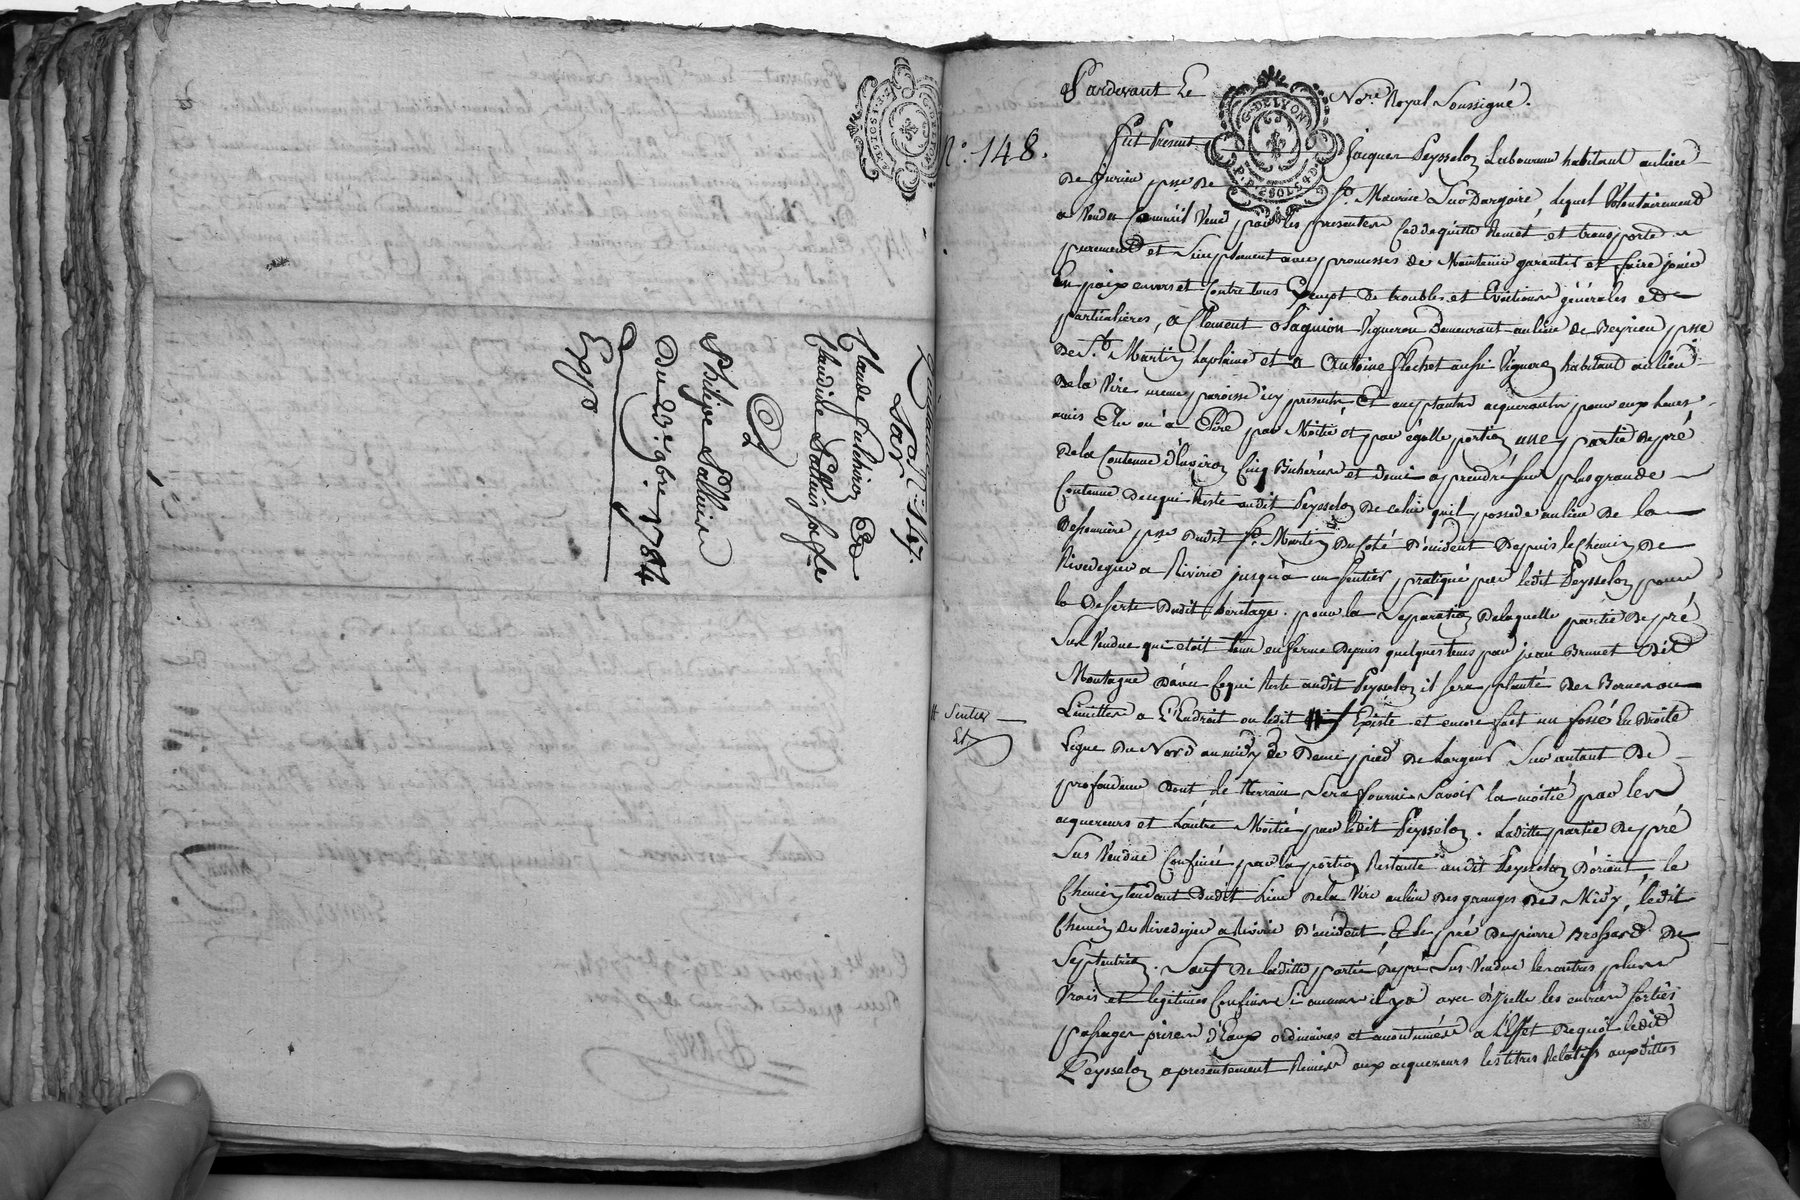 N.° 147.
Par
Claude furchiron Et
Claudine Palluis Sa fe
a
Philipe Palluis
Du 23e. 9bre. 1784
Exp.
N.° 148.
G. DE LYON
Pardevant Le Nore. Royal Soussigné.
fut Present Jacques Peysselon Laboureur habitant au lieu
De Jurieu psse De St. Maurice Sur Dargoire, lequel Volontairement
a Vendu Comm'il Vend par les presentes Cedde quitte Remet et transporte
purement et Simplement avec promesses de Maintenir garentir et faire jouir
En paix envers et Contre tous Exempt De troubles et Evictions générales et
particulieres, a Clement Olagnion Vigneron Demeurant au lieu de Beyrieu psse
De St. Martin Laplaine et a Antoine flechet aussi Vigneron habitant au lieu
De la Vire meme paroisse icy presents Et acceptants acquerants pour eux leurs
amis Elu ou à Elire par Moitié et par égalle portion une partie De pré
De la Contenue d'Environ Cinq Bicherées et Demi a prendre sur plus grande
Contenue De ce qui Reste audit Peysselon De celui qu'il possede au lieu De la
psse Dudit St. Martin Du Coté D'occident Depuis le Chemin De
Rivedegier a Riverie jusqu'a un Sentier pratiqué par ledit Peysselon pour
la Deserte Dudit heritage. pour la Separation De laquelle partie De pré
Sus Vendue qui etoit tenu en ferme Depuis quelques tems par jean Brunet Dit
Montagne D'avec Ce qui Reste audit Peysselon il Sera planté Des Bornes ou
Limittes a L'Endroit ou ledit # Existe et encore fait un fossé En Droite
# Sentier
Ligne Du Nord au midy De Demi pied De Largeur Sur autant De
profondeur Dont le terrain Sera fourni Savoir la moitié par les
acquereurs et L'autre Moitié par ledit Peysselon. Laditte partie De pré
Sus Vendue Confinée par la portion Restante audit Peysselon D'orient, le
Chemin tendant Dudit Lieu De la Vire au lieu Des granges De Midy, ledit
Chemin De Rivedegier a Riverie D'occident, Et le pré De pierre Brossard De
Septentrion. Sauf De laditte partie De pré Sus Vendue les autres plus
Vrais et legitimes Confins Si aucuns il y a avec D'Icelle les entrées sorties
passages prises d'Eaux ordinaires et acoutumées a L'Effet De quoi ledit
Peysselon a presentement Remis aux acquereurs les titres Relatifs auxdittes